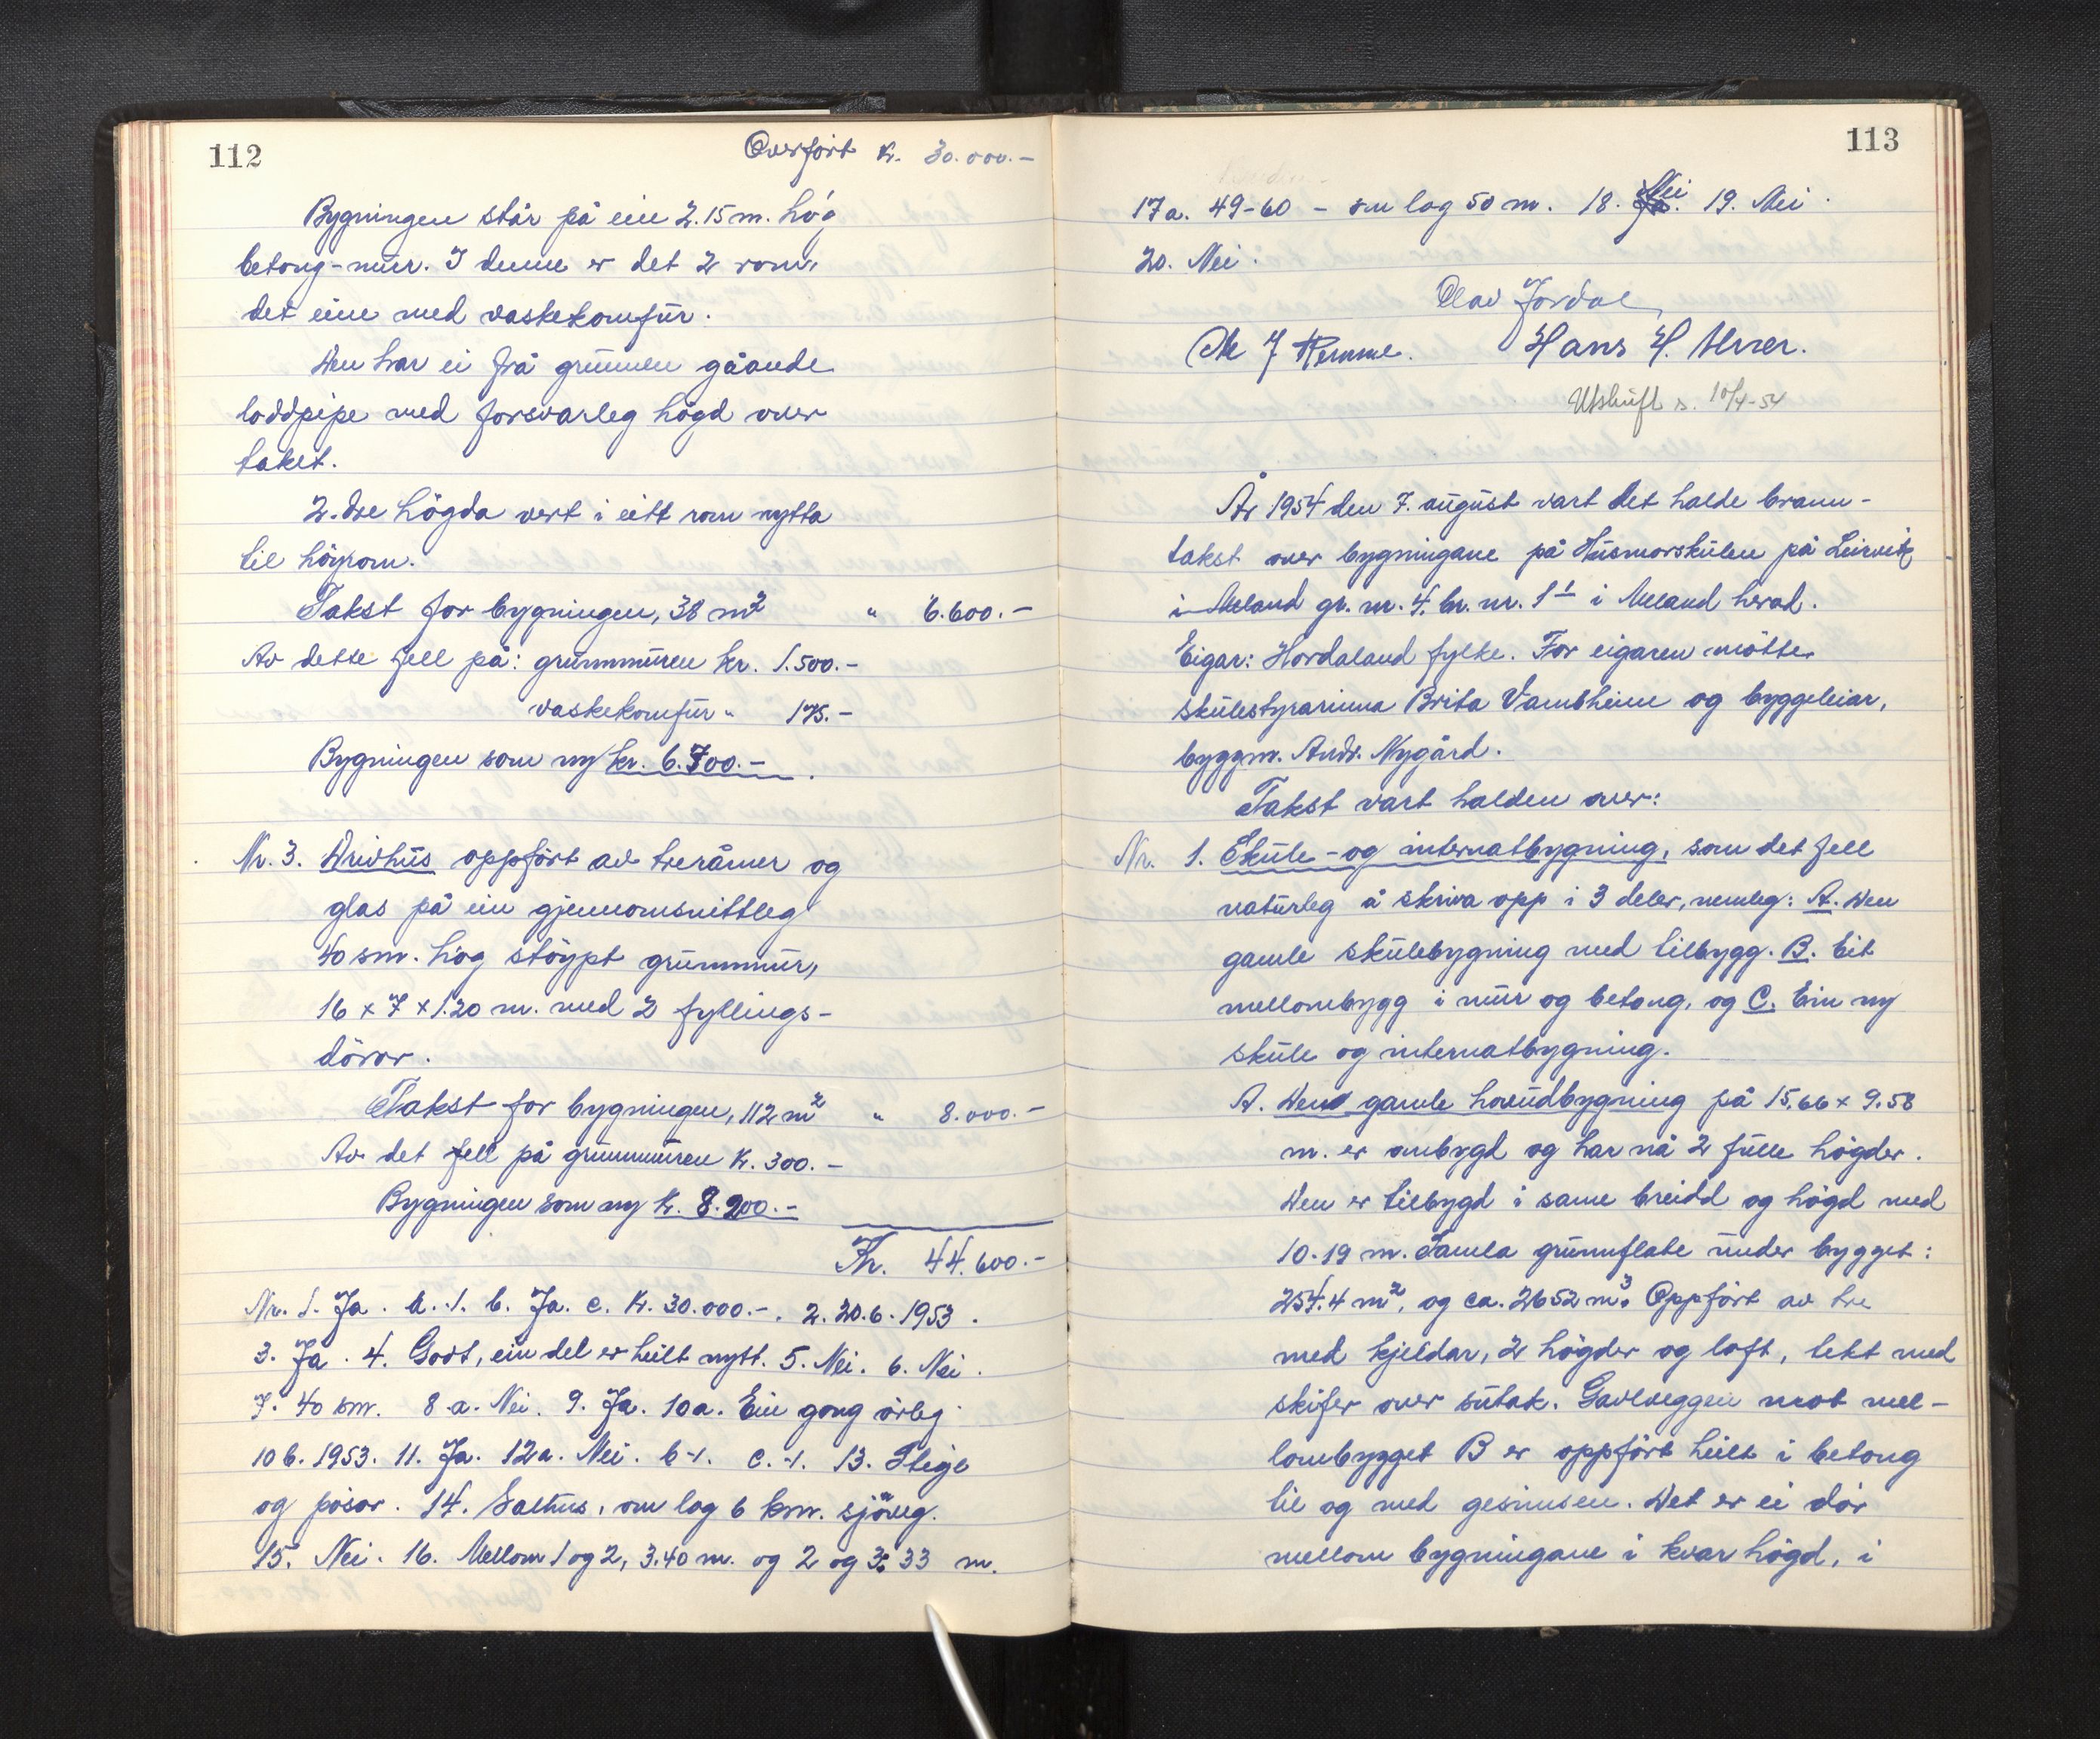 112
Overført kr. 30.000.-
Bygningen står på ein 2.15 m. høg
betong-mur. I denne er det 2 rom,
det eine med vaskekomfur.
Den har ei frå grunnen gåande
loddpipe med forsvarleg høgd over
taket.
2. dre høgda vert i eitt rom nytta
til høyrom.
Takst for bygningen, 38 m² " 6.600.-
Av dette fell på: grunnmuren kr. 1.500.-
vaskekomfur " 175.-
Bygningen som ny kr. 6.700.-.
Nr. 3. Drivhus oppført av trerâmer og
glas på ein gjennomsnittleg
40 sm. høg støypt grunnmur,
16 x 7 x 1.20 m. med 2 fyllings-
dörer.
Takst for bygningen, 112 m² " 8.000.-
Av det fell på grunnmuren kr. 300.-
Bygningen som ny kr. 8.200.-
Kr. 44.600.-
Nr. 1. Ja. a. 1. b. Ja. c. kr. 30.000.-. 2. 20.6.1953.
3. Ja. 4. Godt, ein del er heilt nytt. 5. Nei. 6. Nei.
7. 40 sm. 8.a. Nei. 9. Ja. 10a. Ein gong årleg
10b. 1953. 11. Ja. 12a. Nei. b-1. c.-1. 13. Stige
og pøsar. 14. Salhus, om lag 6 km. sjøveg.
15. Nei. 16. Mellom 1 og 2, 3.40 m. og 2 og 3: 33 m.
113
17a. 49-60 - om lag 50 m. 18. Nei 19. Nei.
20. Nei.
Olav Jordal
Hans H.
Utskrift s. 10/4-54
År 1954 den 7. august vart det halde brann-
takst over bygningane på Husmorskulen på Leirvik
i Meland gr. nr. 4. br. nr. 1¹ i Meland herad.
Eigar: Hordaland fylke. For eigaren møtte
skulestyrarinna Brita Vambheim og byggeleiar,
byggm. Andr. Nygård.
Takst vart halden over:
Nr. 1. Skule- og internatbygning, som det fell
naturleg å skriva opp i 3 deler, nemleg: A. Den
gamle skulebygning med tilbygg. B. Eit
mellombygg i mur og betong, og C. Ein ny
skule og internatbygning.
A. Den gamle hovudbygning på 15.66 x 9.58
m. er ombygd og har nå 2 fulle høgder.
Den er tilbygd i same breidd og høgd med
10.19 m. Samla grunnflate under bygget:
254.4 m², og ca. 2652 m³. Oppført av tre
med kjeldar, 2 høgder og loft, tekt med
skifer over sutak. Gavlveggen mot mel-
lombygget B er oppført heilt i betong
til og med gesimsen. Det er ei dör
mellom bygningane i kvar høgd, i